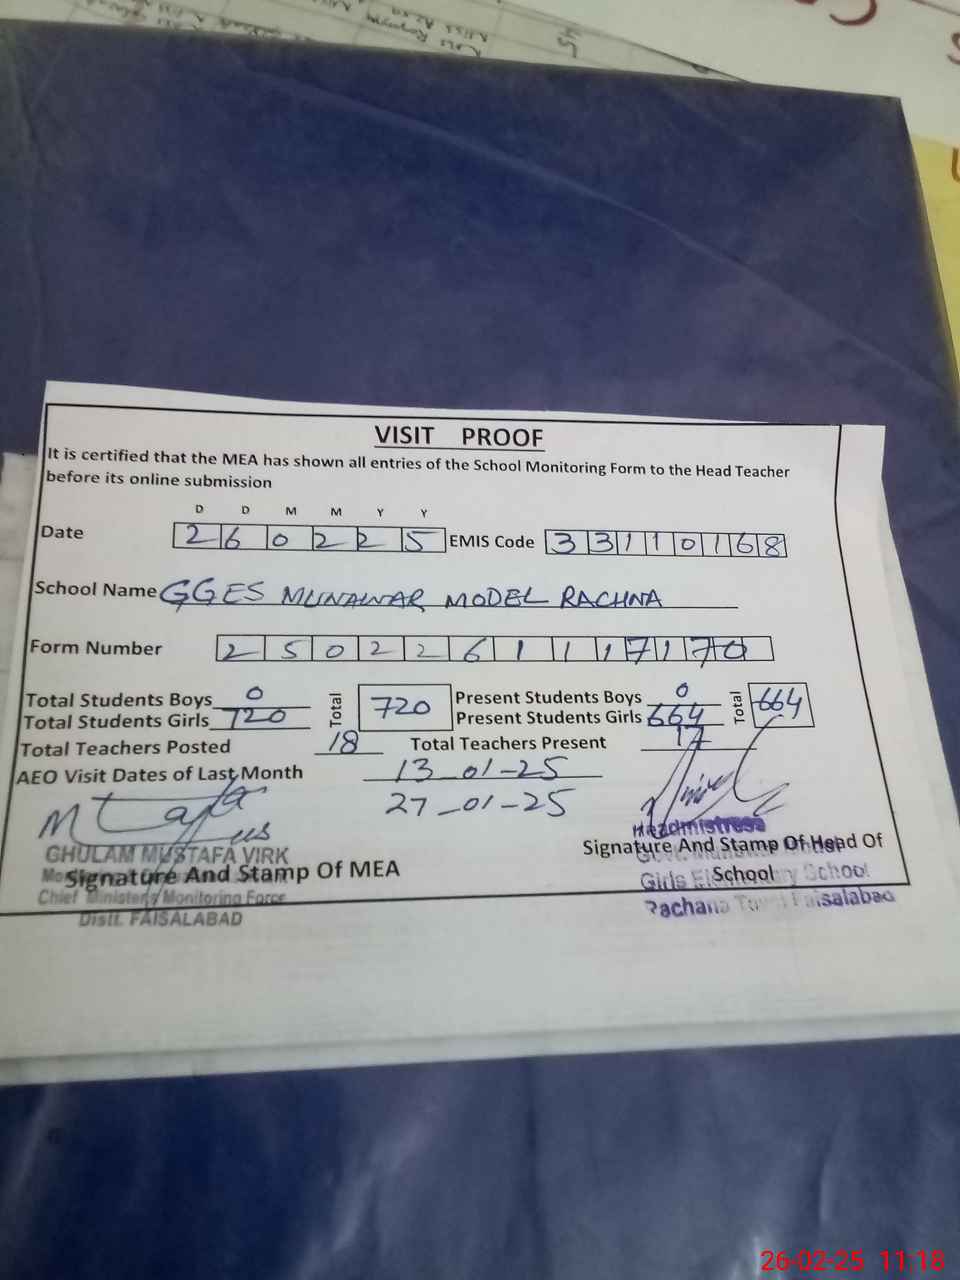 VISIT PROOF
It is certified that the MEA has shown all entries of the School Monitoring Form to the Head Teacher
before its online submission
D D M M Y Y
Date 2 6 0 2 2 5 EMIS Code 3 3 1 1 0 1 6 8
School Name GGES MUNAWAR MODEL RACHNA
Form Number 2 5 0 2 2 6 1 1 1 7 1 7 0
Total Students Boys 0 Total 720 Present Students Boys 0 Total 664
Total Students Girls 720 Present Students Girls 664
Total Teachers Posted 18 Total Teachers Present 17
AEO Visit Dates of Last Month 13-01-25
27-01-25
Headmistress
Signature And Stamp Of Head Of
School
Girls Elementary School
Rachana Town Faisalabad
GHULAM MUSTAFA VIRK
Signature And Stamp Of MEA
Chief Minister's Monitoring Force
Distt. FAISALABAD
26-02-25 11:18